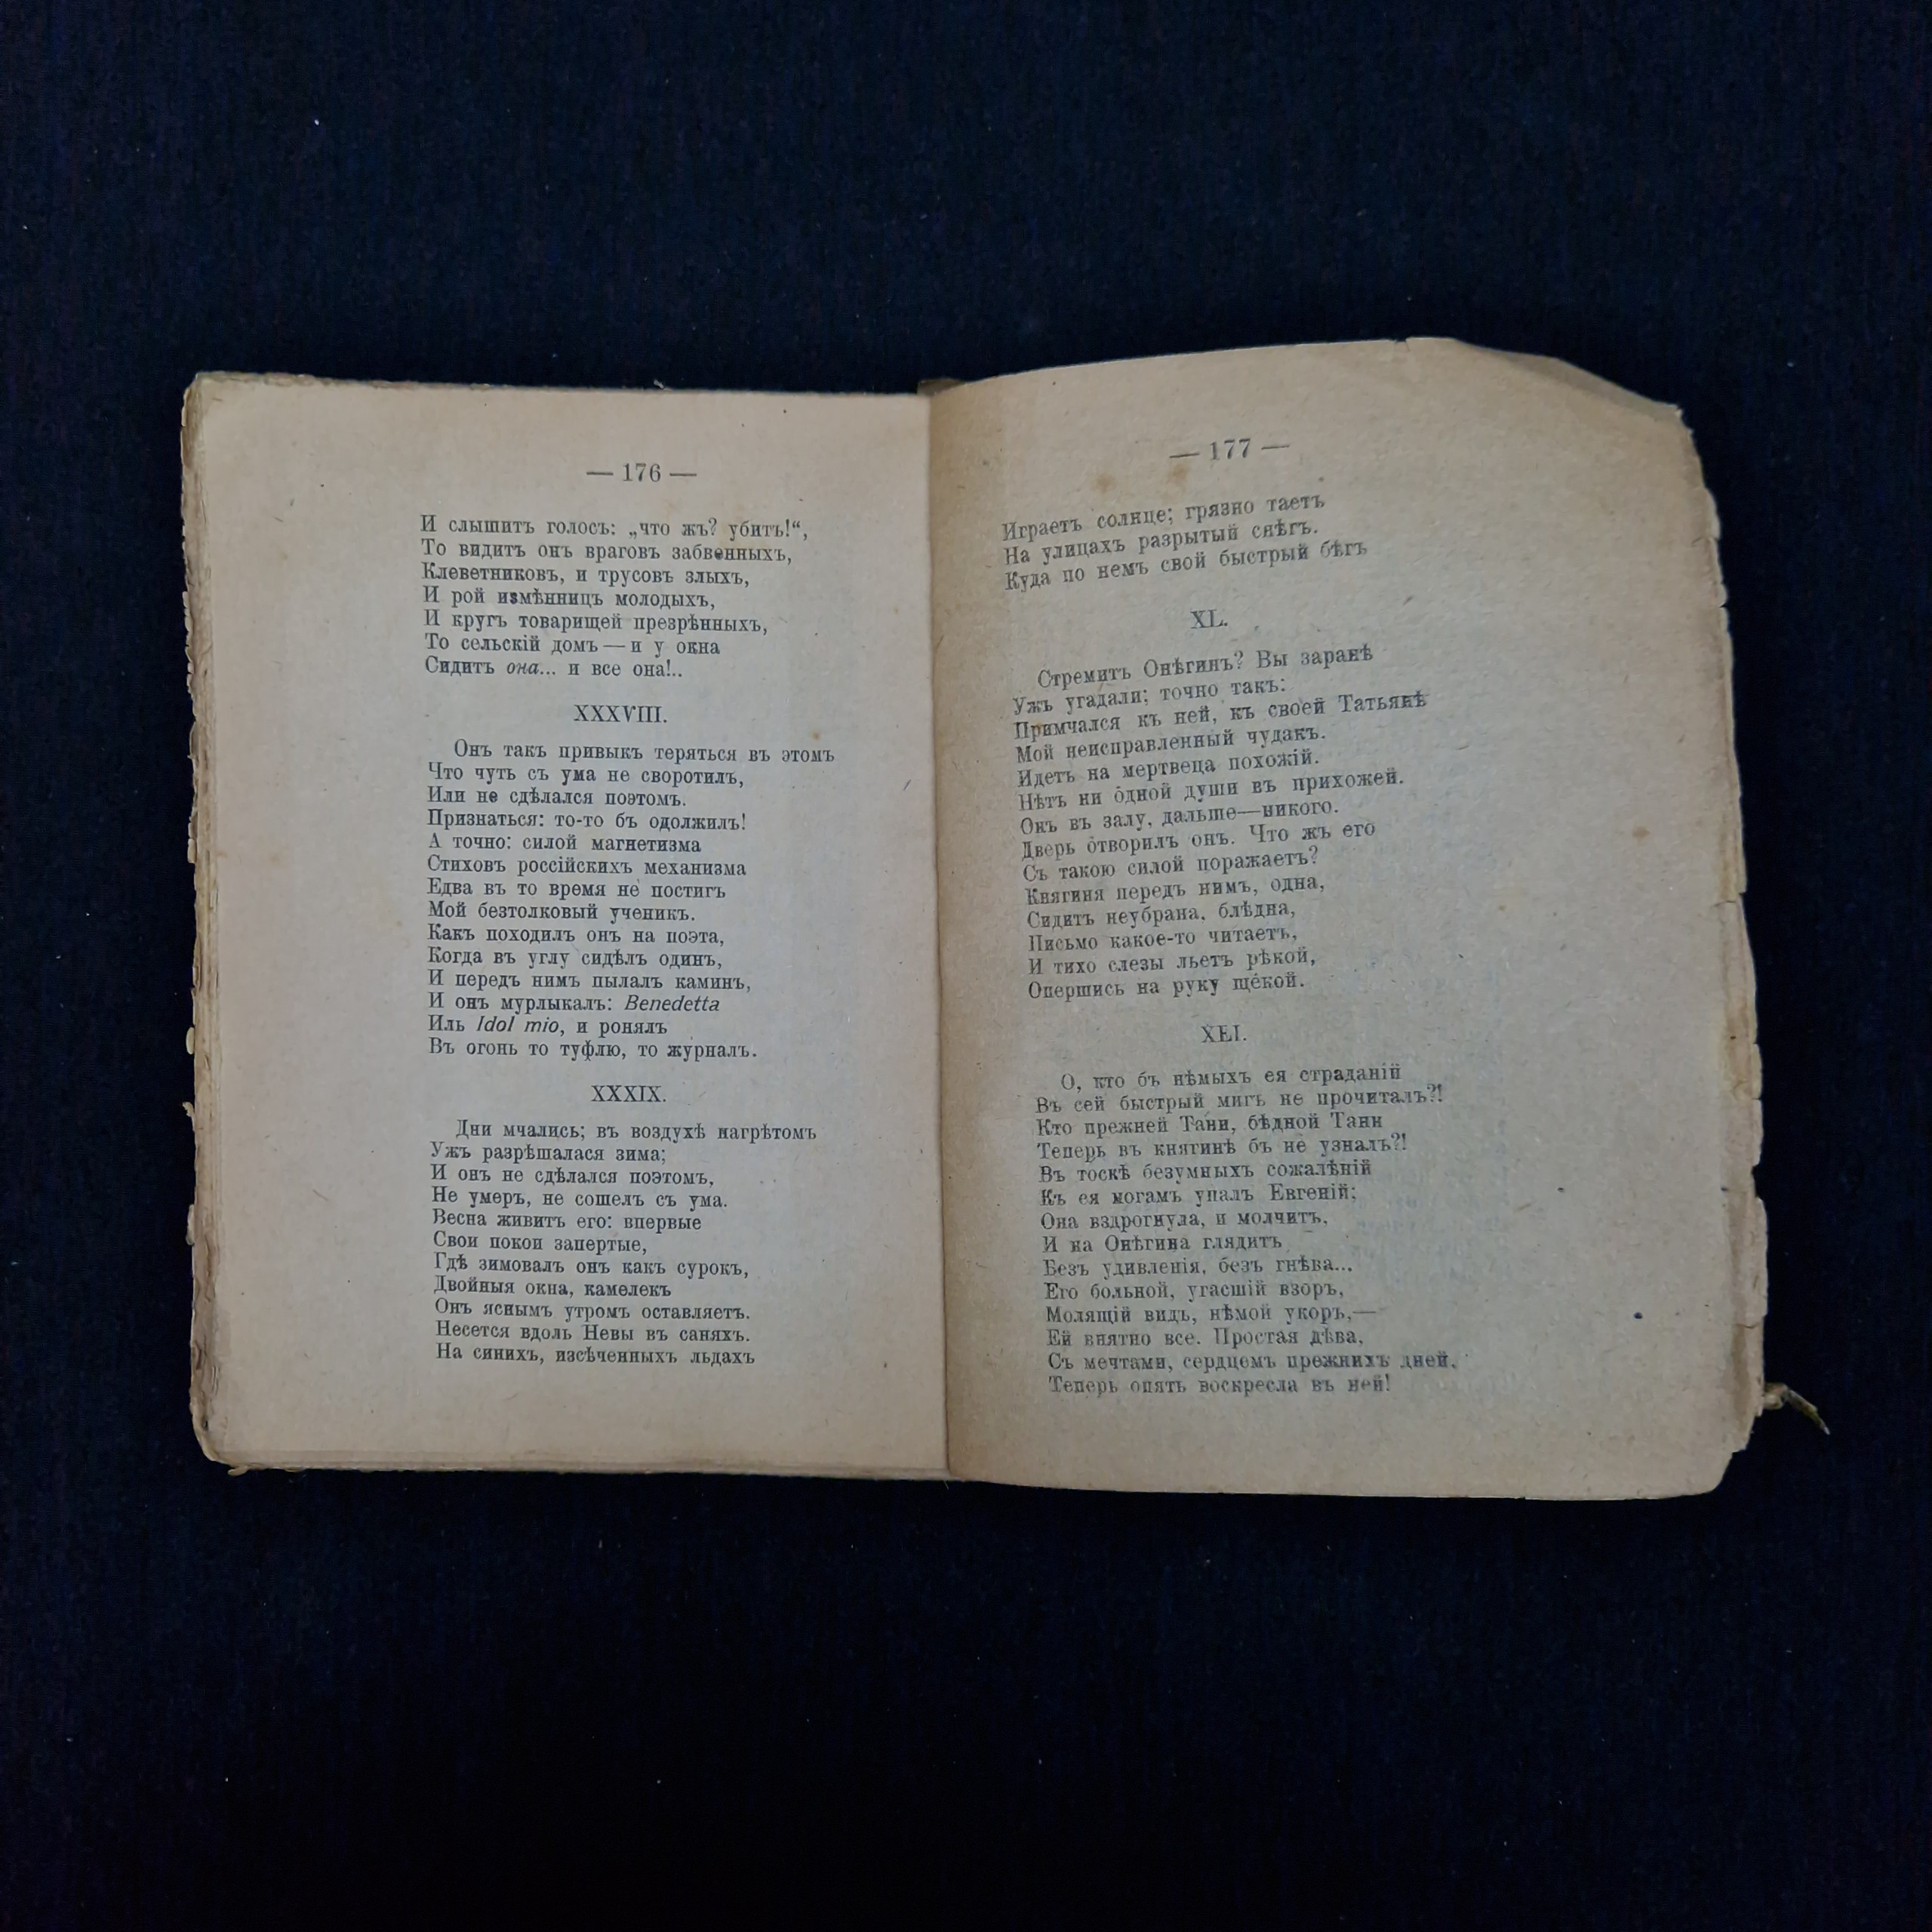 — 176 —
И слышитъ голосъ: „что жъ? убитъ!“,
То видитъ онъ враговъ забвенныхъ,
Клеветниковъ, и трусовъ злыхъ,
И рой измѣнницъ молодыхъ,
И кругъ товарищей презрѣнныхъ,
То сельскій домъ — и у окна
Сидитъ она... и все она!..
XXXVIII.
Онъ такъ привыкъ теряться въ этомъ
Что чуть съ ума не своротилъ,
Или не сдѣлался поэтомъ.
Признаться: то-то бъ одолжилъ!
А точно: силой магнетизма
Стиховъ россійскихъ механизма
Едва въ то время не постигъ
Мой безтолковый ученикъ.
Какъ походилъ онъ на поэта,
Когда въ углу сидѣлъ одинъ,
И передъ нимъ пылалъ каминъ,
И онъ мурлыкалъ: Benedetta
Иль Idol mio, и ронялъ
Въ огонь то туфлю, то журналъ.
XXXIX.
Дни мчались; въ воздухѣ нагрѣтомъ
Ужъ разрѣшалася зима;
И онъ не сдѣлался поэтомъ,
Не умеръ, не сошелъ съ ума.
Весна живитъ его: впервые
Свои покои запертые,
Гдѣ зимовалъ онъ какъ сурокъ,
Двойныя окна, камелекъ
Онъ яснымъ утромъ оставляетъ.
Несется вдоль Невы въ саняхъ.
На синихъ, изсѣченныхъ льдахъ
— 177 —
Играетъ солнце; грязно таетъ
На улицахъ разрытый снѣгъ.
Куда по немъ свой быстрый бѣгъ
XL.
Стремитъ Онѣгинъ? Вы заранѣ
Ужъ угадали; точно такъ:
Примчался къ ней, къ своей Татьянѣ
Мой неисправленный чудакъ.
Идетъ на мертвеца похожій.
Нѣтъ ни одной души въ прихожей.
Онъ въ залу, дальше—никого.
Дверь отворилъ онъ. Что жъ его
Съ такою силой поражаетъ?
Княгиня передъ нимъ, одна,
Сидитъ неубрана, блѣдна,
Письмо какое-то читаетъ,
И тихо слезы льетъ рѣкой,
Опершись на руку щекой.
XLI.
О, кто бъ нѣмыхъ ея страданій
Въ сей быстрый мигъ не прочиталъ?!
Кто прежней Тани, бѣдной Тани
Теперь въ княгинѣ бъ не узналъ?!
Въ тоскѣ безумныхъ сожалѣній
Къ ея ногамъ упалъ Евгеній;
Она вздрогнула, и молчитъ,
И на Онѣгина глядитъ
Безъ удивленія, безъ гнѣва...
Его больной, угасшій взоръ,
Молящій видъ, нѣмой укоръ,—
Ей внятно все. Простая дѣва,
Съ мечтами, сердцемъ прежнихъ дней,
Теперь опять воскресла въ ней!